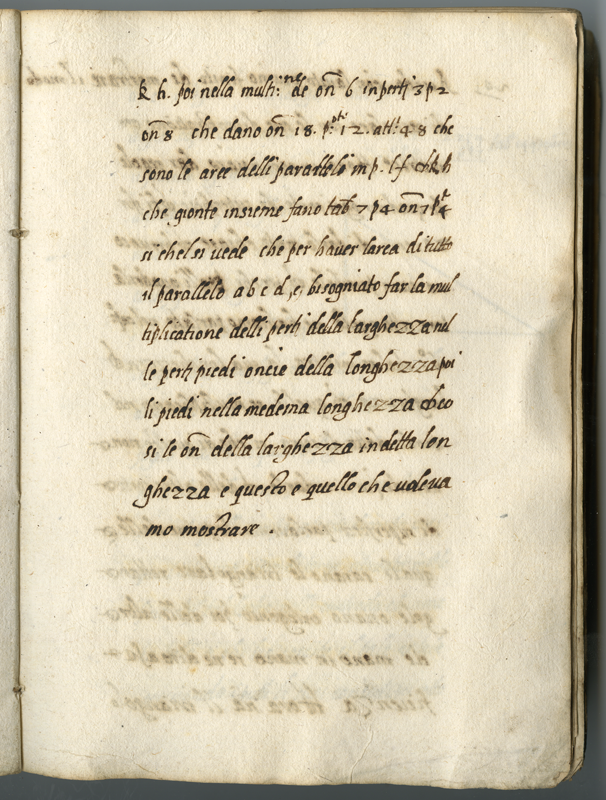 k h. poi nella multi:ne de on̄ 6 in pertj 3 p 2
on̄ 8 che dano on̄ 18. p:oti 12. att:i 48 che
sono le aree delli paralleli m p. l f & k h
che gionte insieme fano tab̄ 7 p 4 on̄ 7 p:t 4
si che si vede che per haver larea di tutto
il parallelo a b c d, e bisogniato far la mul
tiplicatione delli pertj della larghezza nel
le pertj piedi oncie della longhezza poi
li piedi nella medema longhezza & co
si le on̄ della larghezza in detta lon
ghezza e questo e quello che voleva
mo mostrare .